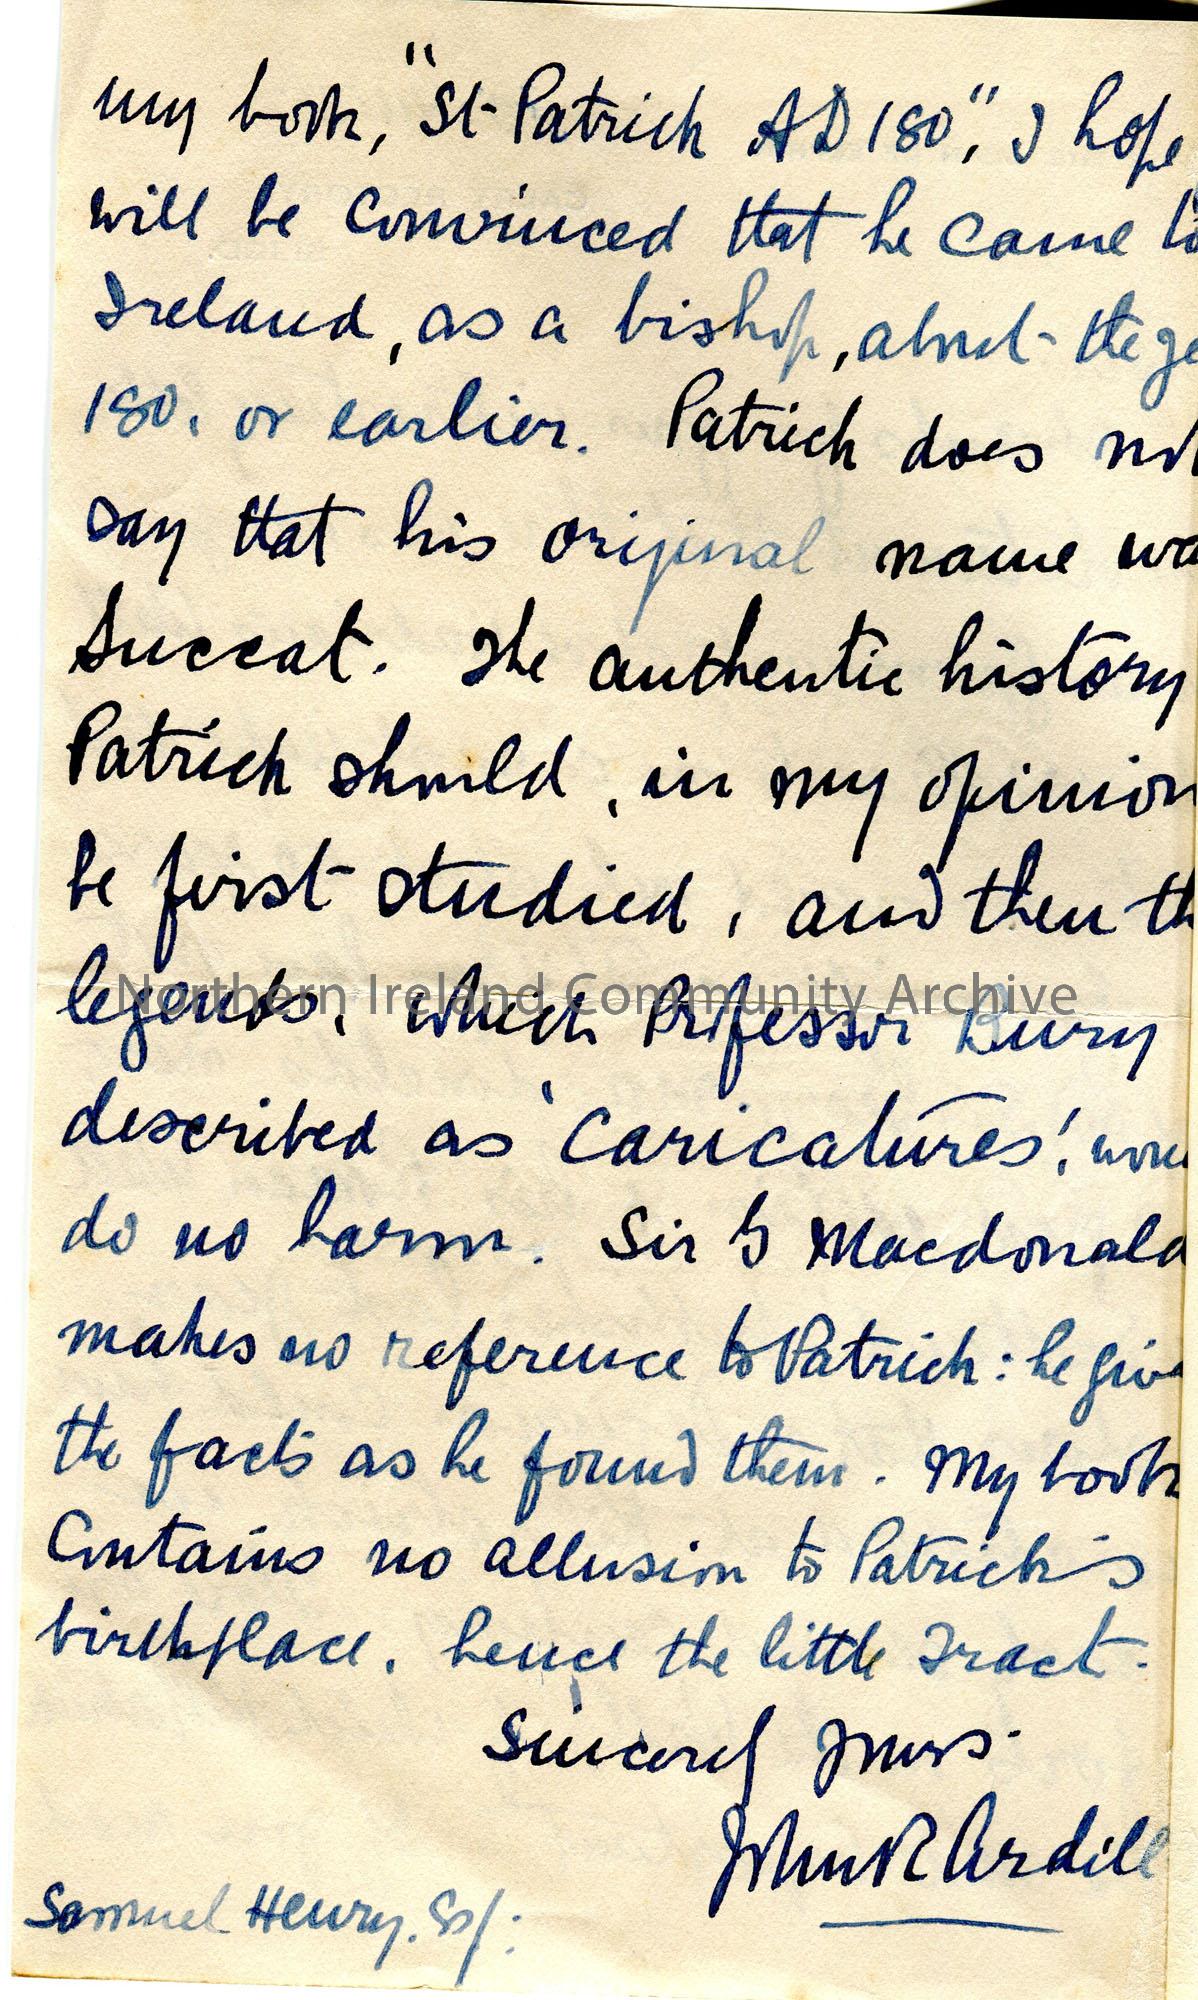 my book, "St Patrick AD 180", I hope
will be convinced that he came to
Ireland, as a bishop, about the ye
180. or earlier. Patrick does not
say that his original name wa
Succat. The authentic history
Patrick should, in my opinion
be first studied, and then th
legends, which Professor Bury
Northern Ireland Community Archive
described as 'Caricatures', wou
do no harm. Sir G Macdonald
makes no reference to Patrick: he give
the facts as he found them. My book
Contains no allusion to Patrick's
birthplace, hence the little Tract.
Sincerely Yours.
John R Ardill
Samuel Henry. Esq: